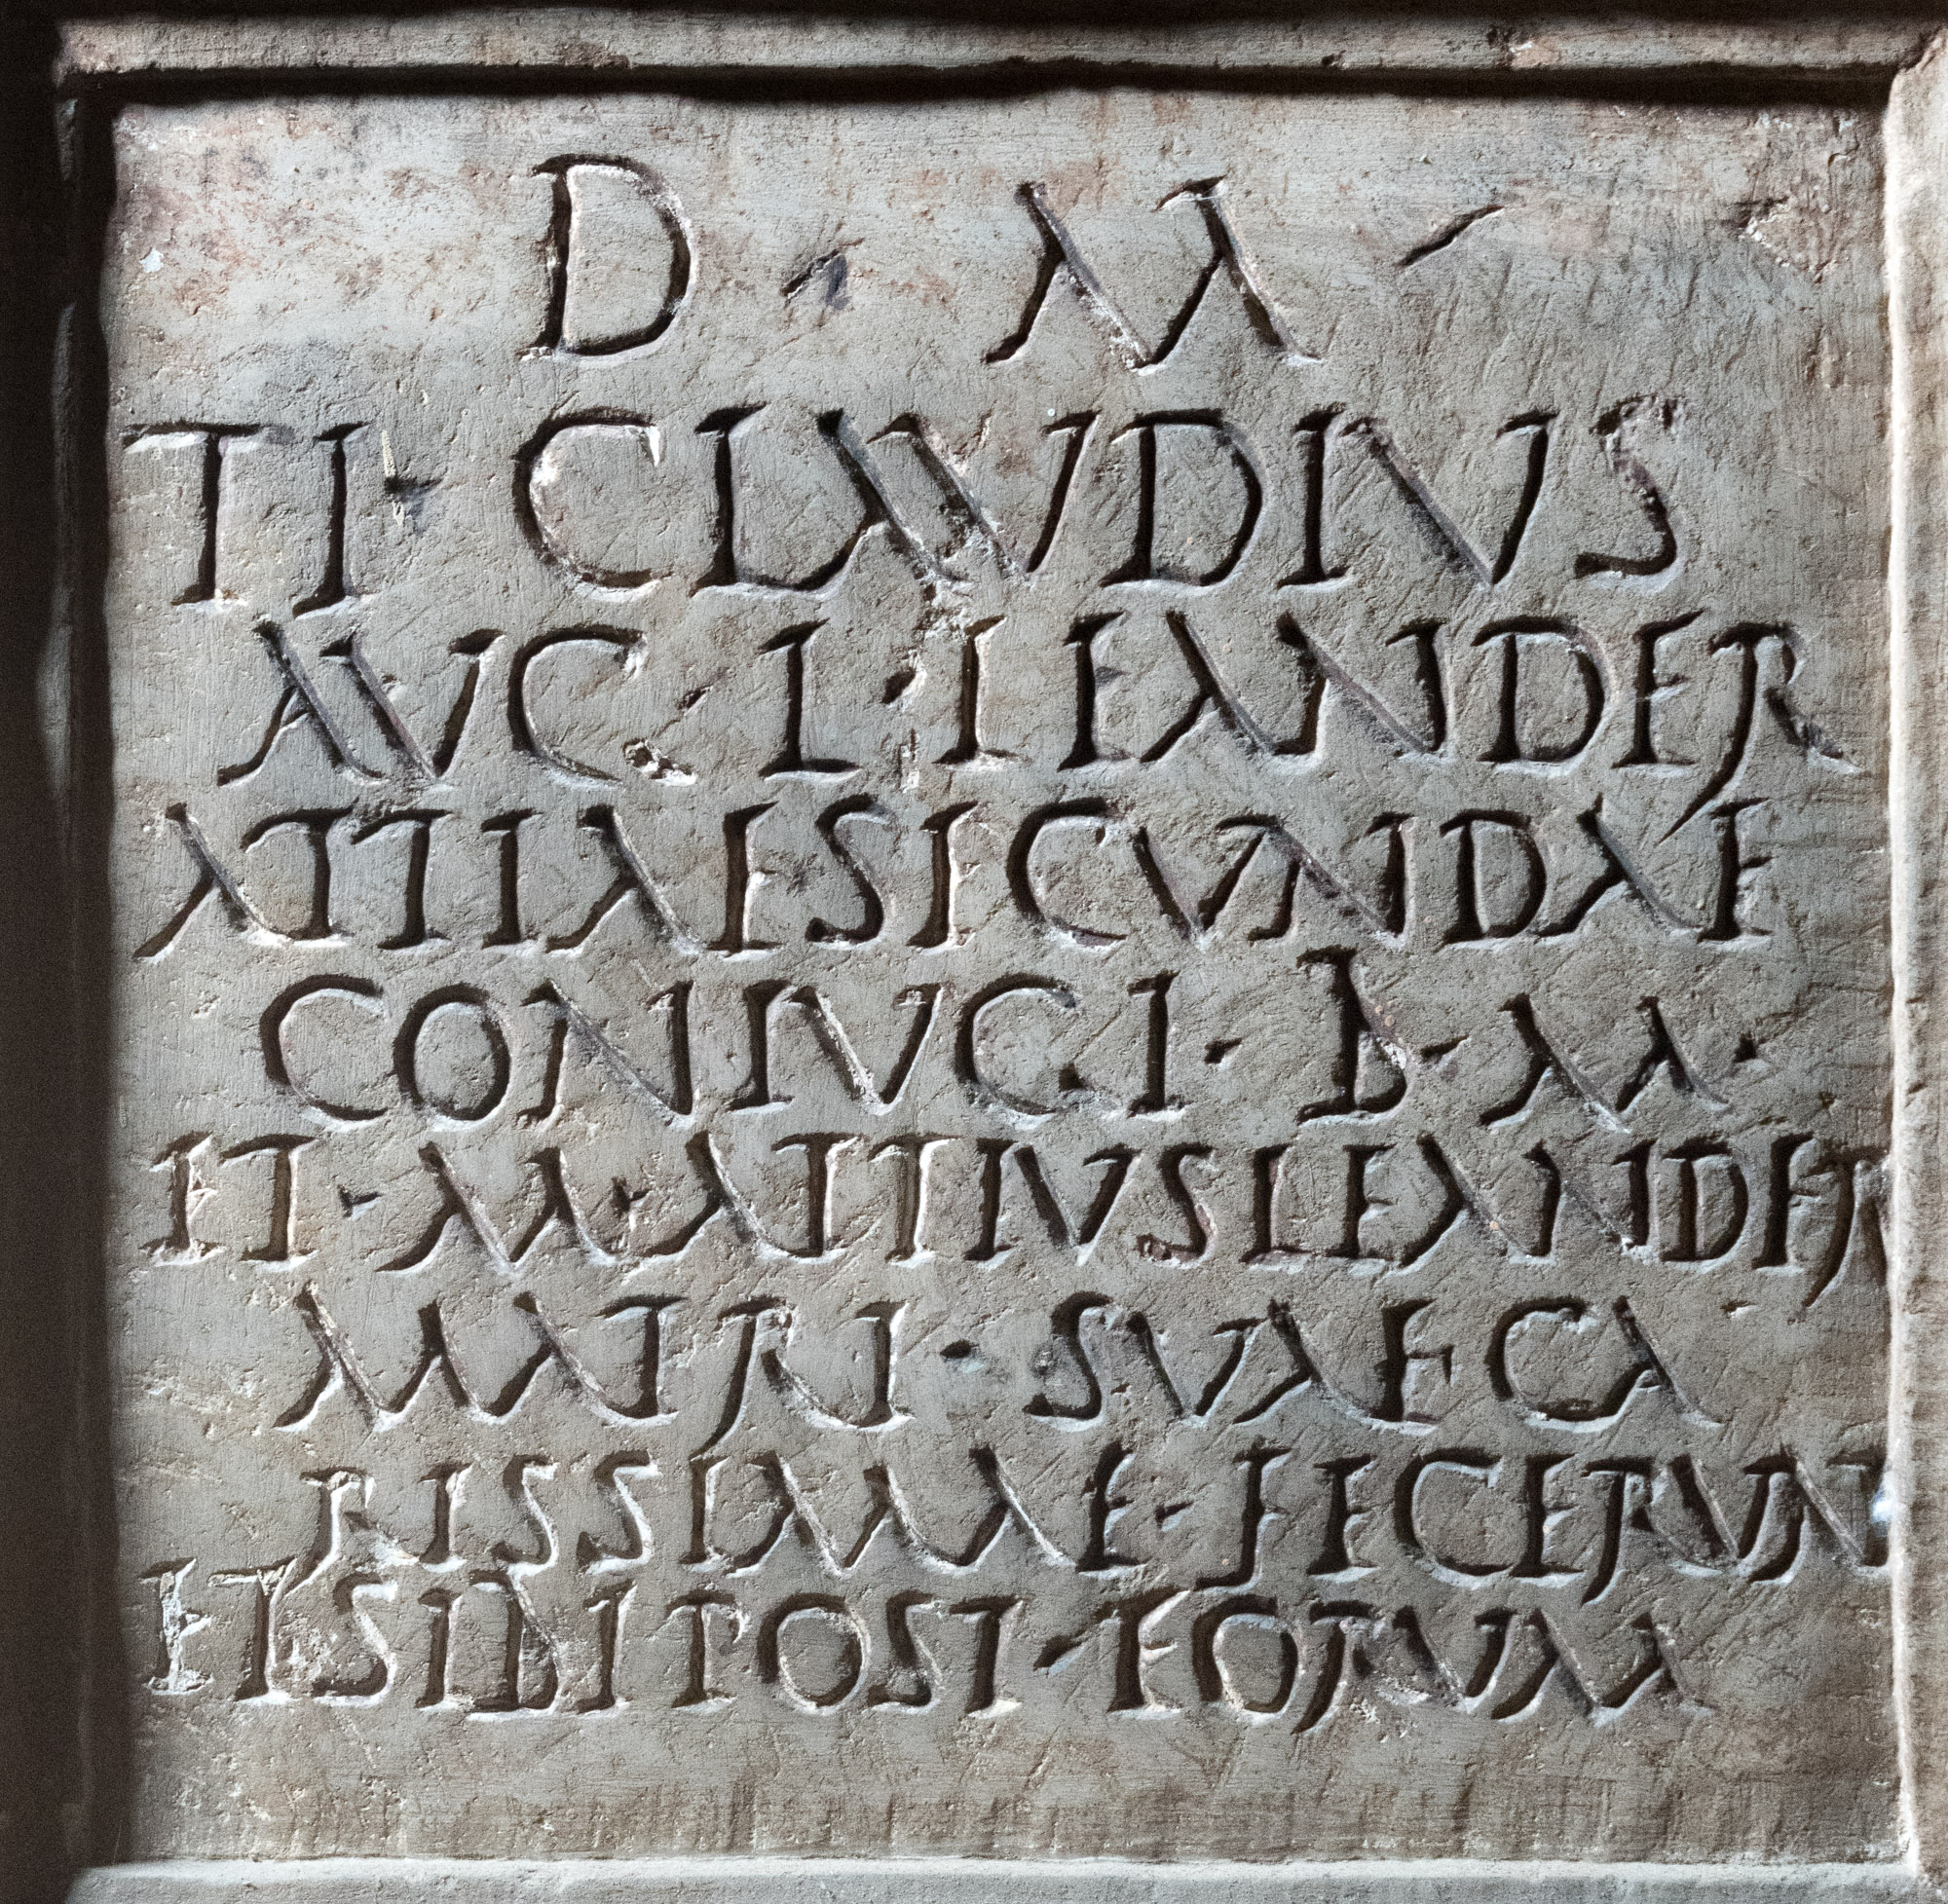 D · M ·
TI · CLAVDIVS
AVG · L · LEANDER
ATTIAE SECVNDAE
CONIVGI · B · M ·
ET · M · ATTIVS LEANDER
MATRI · SVAE CA
RISSIMAE · FECERVN
ET SIBI POST · EORVM